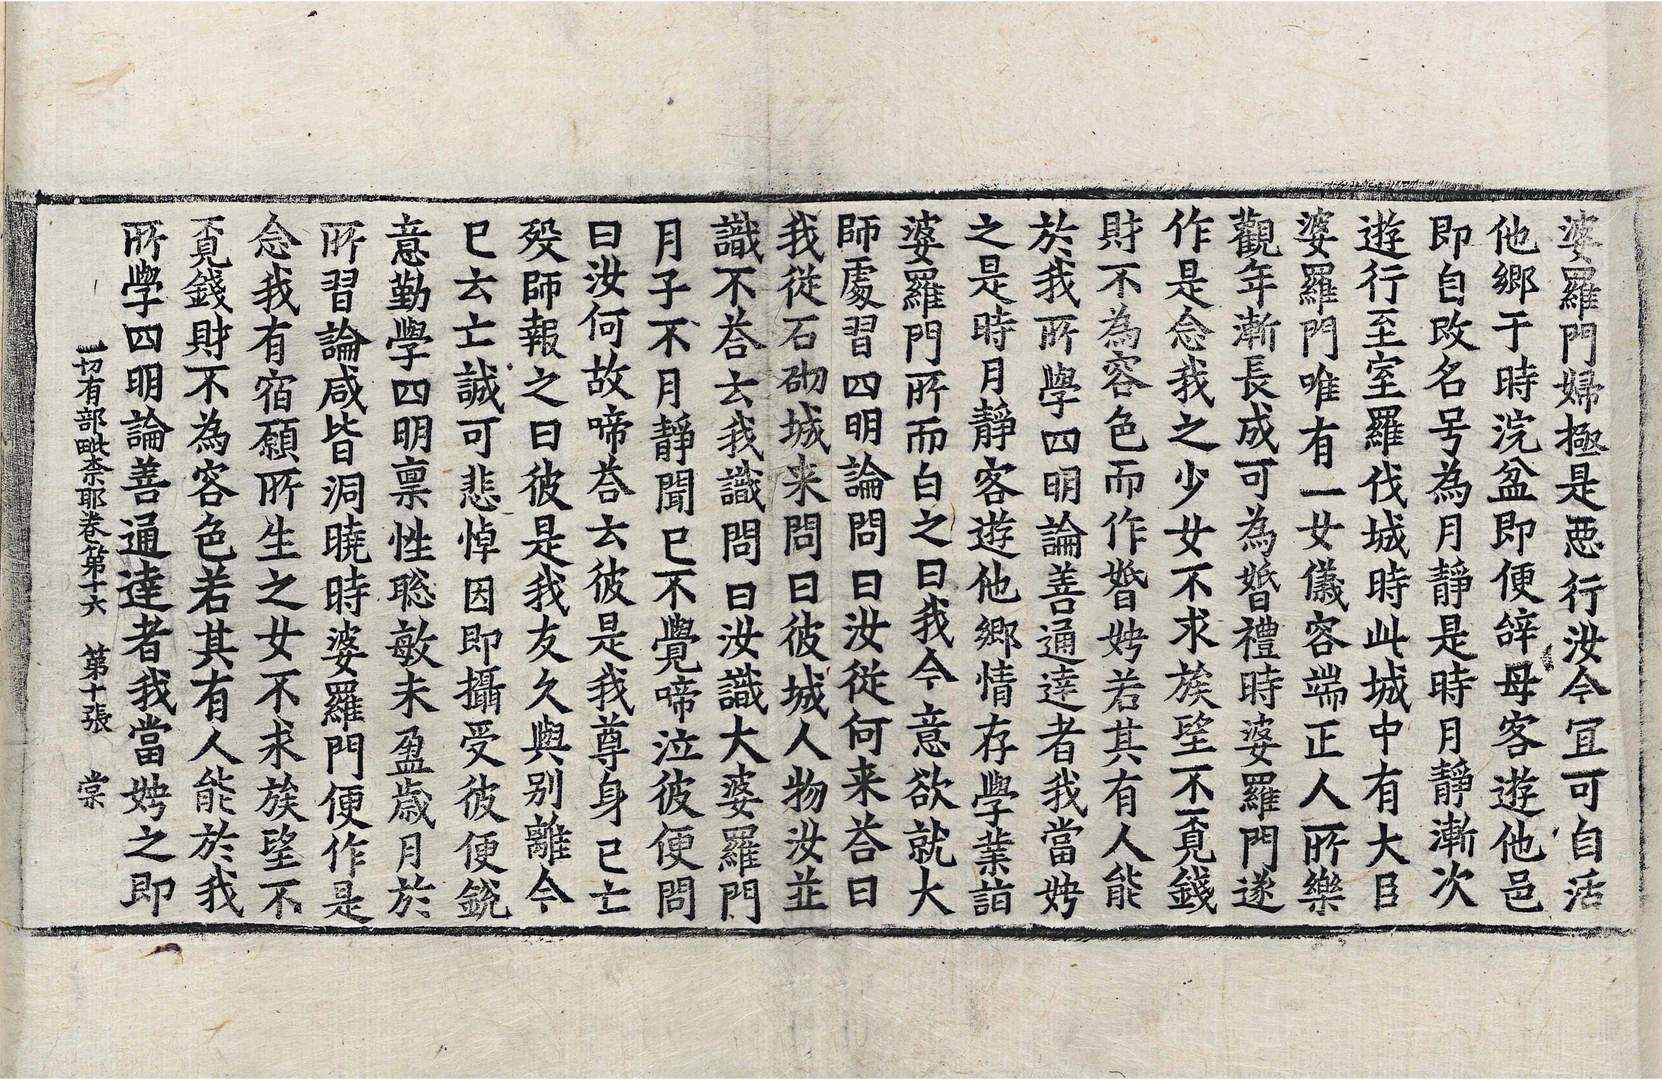 婆羅門婦極是惡行汝今宜可自活
他鄉于時浣盆即便辝母客遊他邑
即自改名号為月靜是時月靜漸次
遊行至室羅伐城時此城中有大臣
婆羅門唯有一女儀容端正人所樂
觀年漸長成可為婚禮時婆羅門遂
作是念我之少女不求族望不覓錢
財不為容色而作婚娉若其有人能
於我所學四明論善通達者我當娉
之是時月靜客遊他鄉情存學業詣
婆羅門所而白之曰我今意欲就大
師處習四明論問曰汝從何来荅曰
我從石砌城来問曰彼城人物汝並
識不荅云我識問曰汝識大婆羅門
月子不月靜聞已不覺啼泣彼便問
曰汝何故啼荅云彼是我尊身已亡
歿師報之曰彼是我友久與别離今
已云亡誠可悲悼因即攝受彼便銳
意勤學四明禀性聡敏未盈歲月於
所習論咸皆洞曉時婆羅門便作是
念我有宿願所生之女不求族望不
覓錢財不為容色若其有人能於我
所學四明論善通達者我當娉之即
一切有部毗柰耶卷第十六 第十張 棠